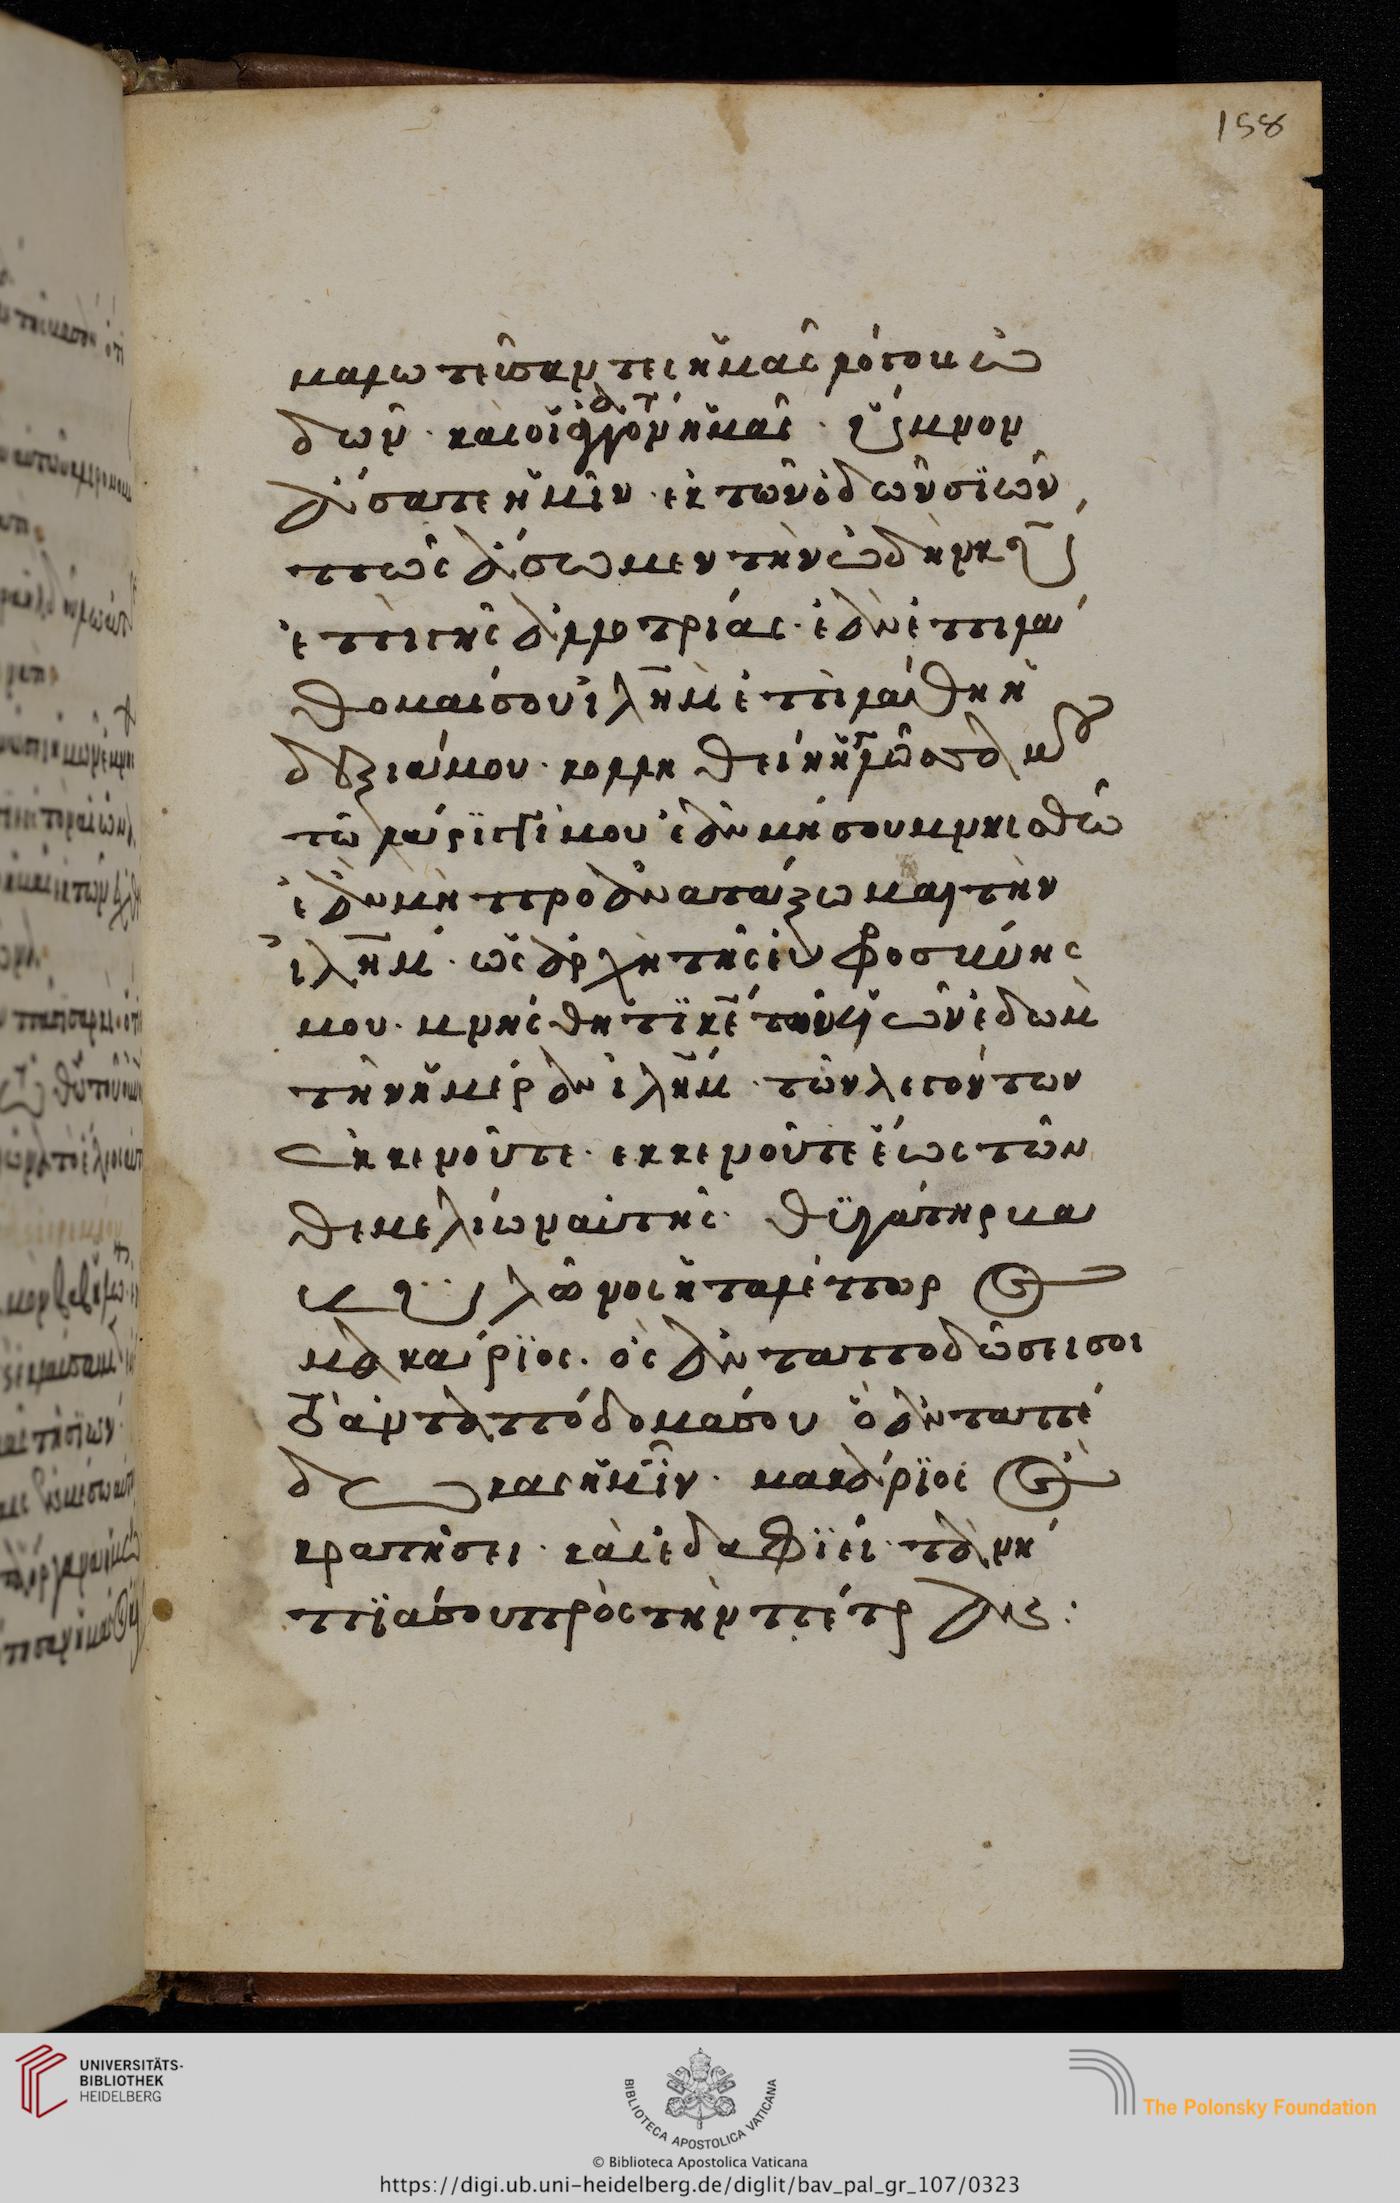 158
μαλωτεύσαντες ἡμᾶς λόγους ὠ
δῶν· καὶ οἱ ἀπαγαγόντες ἡμᾶς· ὕμνον
ἄσατε ἡμῖν· ἐκ τῶν ὠδῶν σϊών,
πῶς ἄσωμεν τὴν ὠδὴν κυ
ἐπὶ γῆς ἀλλοτρίας· ἐὰν ἐπιλά
θομαί σου ϊλημ ἐπιλάθηη
δεξιά μου· κολληθείη ἡ γλῶσσά μου
τῶ λάρϊγγί μου ἐὰν μή σου μνησθῶ
ἐὰν μὴ προανατάξωμαι τὴν
ϊλημ· ὡς ἀρχῆ τῆς εὐφροσύνης
μου· μνήσθητϊ κε τῶν υἱῶν ἐδὼμ
τὴν ἡμέραν ϊλημ· τῶν λεγόντων
ἐκκενοῦτε· ἐκκενοῦτε ἕως τῶν
θεμελίων αὐτῆς· θϊγάτηρ βα
βυλῶνος ἡ ταλέπωρος
μακάρϊος· ὃς ἀνταποδώσει σοι
τὸ ἀνταπόδομά σου ὃ ἀνταπέ
δωκας ἡμῖν· μακάρϊος ὃς
κρατήσει· καὶ ἐδαφϊεῖ· τὰ νή
πϊά σου πρὸς τὴν πέτραν:
UNIVERSITÄTS-
BIBLIOTHEK
HEIDELBERG
BIBLIOTECA APOSTOLICA VATICANA
The Polonsky Foundation
© Biblioteca Apostolica Vaticana
https://digi.ub.uni-heidelberg.de/diglit/bav_pal_gr_107/0323